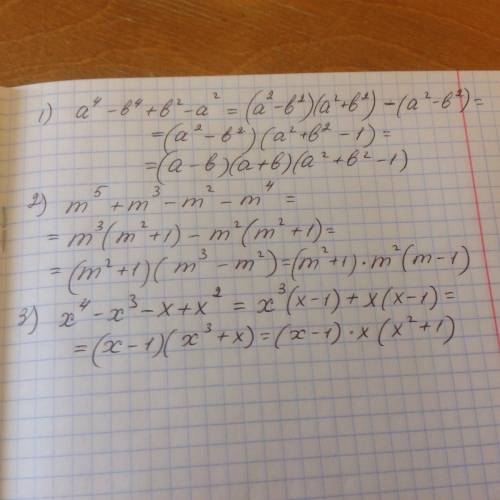 1) a⁴ - b⁴ + b² - a² = (a² - b²)(a² + b²) - (a² - b²) =
= (a² - b²)(a² + b² - 1) =
= (a - b)(a + b)(a² + b² - 1)
2) m⁵ + m³ - m² - m⁴ =
= m³(m² + 1) - m²(m² + 1) =
= (m² + 1)(m³ - m²) = (m² + 1) · m²(m - 1)
3) x⁴ - x³ - x + x² = x³(x - 1) + x(x - 1) =
= (x - 1)(x³ + x) = (x - 1) · x(x² + 1)